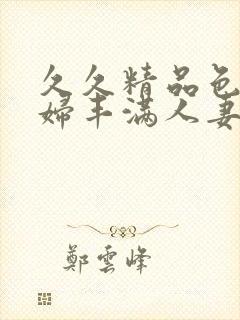 久久精品色
婦丰满人妻
鄭雲峰